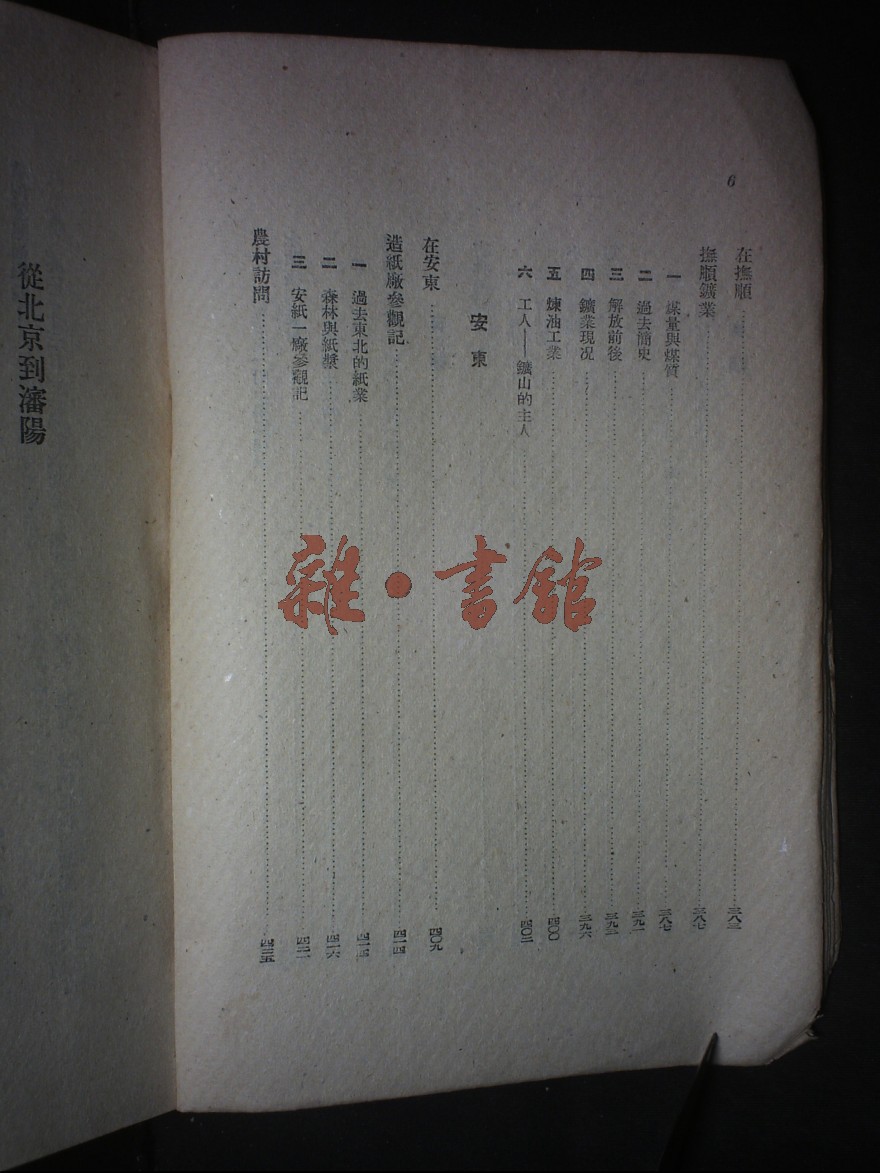 6
在撫順……三八三
撫順鑛業……三八七
一 煤量與煤質……三八七
二 過去簡史……三九一
三 解放前後……三九二
四 鑛業現况……三九六
五 煉油工業……四〇〇
六 工人——鑛山的主人……四〇二
安東
在安東……四〇九
造紙廠參觀記……四一四
一 過去東北的紙業
二 森林與紙漿……四一六
三 安紙一廠參觀記
農村訪問……四三五
從北京到瀋陽
雜·書館